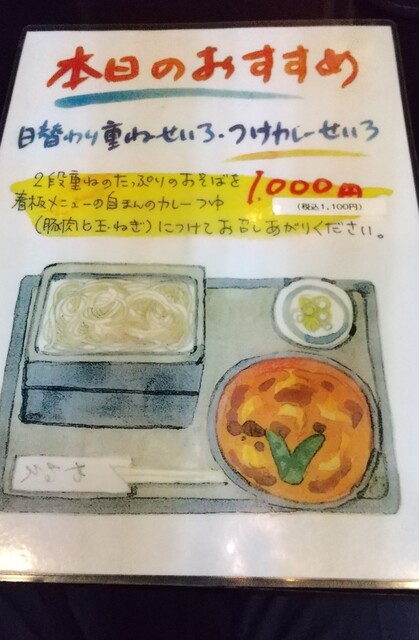 本日のおすすめ
日替わり重ねせいろ・つけカレーせいろ
2段重ねのたっぷりのおそばを 1.000円
看板メニューの自まんのカレーつゆ (税込1,100円)
(豚肉と玉ねぎ)につけてお召しあがりください。